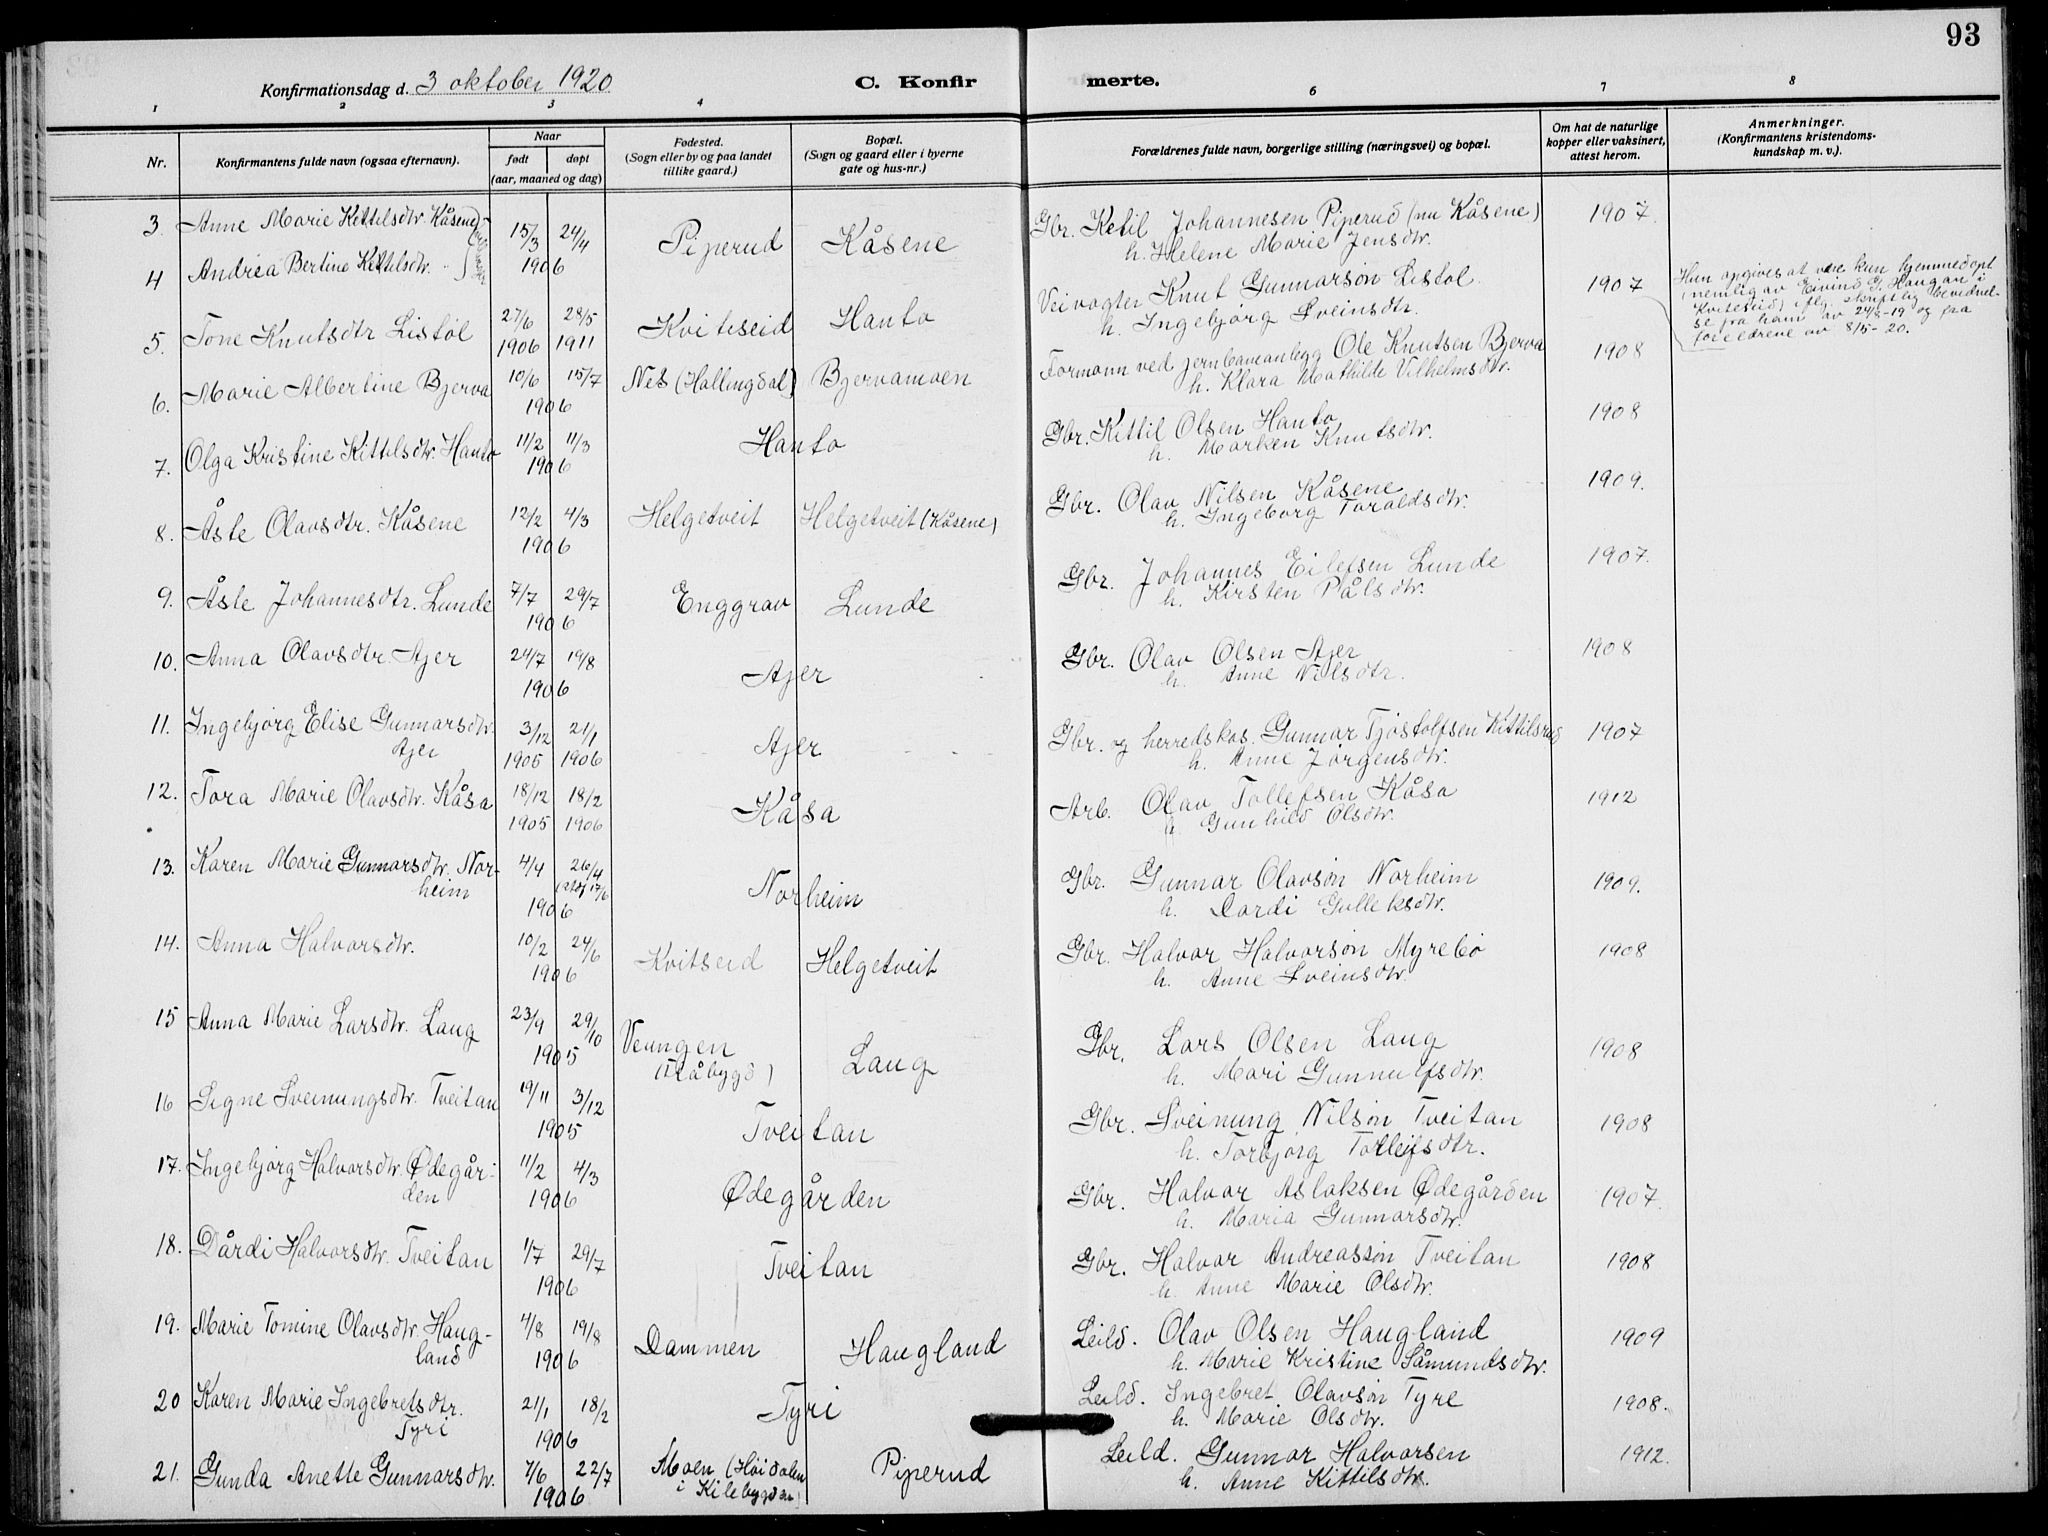 93
Konfirmationsdag d. 3 oktober 1920
C. Konfir merte.
1 2 3 4 6 7 8
Nr.
Konfirmantens fulde navn (ogsaa efternavn).
Naar
født
døpt
(aar, maaned og dag)
Fødested.
(Sogn eller by og paa landet
tillike gaard.)
Bopæl.
(Sogn og gaard eller i byerne
gate og hus-nr.)
Forældrenes fulde navn, borgerlige stilling (næringsvei) og bopæl.
Om hat de naturlige
kopper eller vaksinert,
attest herom.
Anmerkninger.
(Konfirmantens kristendoms-
kundskap m. v.).
3. Anne Marie Kettilsdtr Kåsene 15/3 24/4 Piperud Kåsene Gbr. Ketil Johannesen Piperud (nu Kåsene) 1907.
4 Andrea Bertine Kittilsdtr. 1906 h. Helene Marie Jensdtr.
5. Tone Knutsdtr Listøl 27/6 28/5 Kviteseid Hanto Veivogter Knut Gunnarson Listøl 1907
1906 1911 h. Ingebjørg Sveinsdtr.
Hun opgives at være kun hjemmedøpt
(nemlig av Eivind G. Haugan i
Kviteseid) iflg. skriftlig bevidnel-
se fra ham av 24/5-19 og fra
foreldrene av 8/5-20.
6. Marie Albertine Bjerva 10/6 15/7 Nes (Hallingdal) Bjervamoen Formann ved jernbaneanlegg Ole Knutsen Bjerva 1908
1906 h. Klara Mathilde Vilhelmsdtr.
7. Olga Kristine Kittilsdtr. Hanto 11/2 11/3 Hanto Gbr. Kittil Olsen Hanto 1908
1906 h. Marken Knutsdtr.
8. Åsle Olavsdtr. Kåsene 12/2 4/3 Helgetveit Helgetveit (Kåsene) Gbr. Olav Nilsen Kåsene 1909.
1906 h. Ingeborg Taraldsdtr.
9. Åsle Johannesdtr. Lunde 7/7 29/7 Enggrav Lunde Gbr. Johannes Eilefsen Lunde 1907.
1906 h. Kirsten Pålsdtr.
10. Anna Olavsdtr. Ajer 24/7 19/8 Ajer Gbr. Olav Olsen Ajer 1908
1906 h. Anne Nilsdtr.
11. Ingebjørg Elise Gunnarsdtr. 3/12 21/1 Ajer Gbr. og herredskas. Gunnar Tjøstolfsen Kittilsrud 1907
Ajer 1905 1906 h. Anne Jørgensdtr.
12. Tora Marie Olavsdtr. Kåsa 18/12 18/2 Kåsa Arb. Olav Tollefsen Kåsa 1912
1905 1906 h. Gunhild Olsdtr.
13. Karen Marie Gunnarsdtr. Nor- 4/4 26/4 Norheim Gbr. Gunnar Olavson Norheim 1909.
heim 17/6 1906 h. Dardi Gulleksdtr.
14. Anna Halvorsdtr. 10/2 24/6 Kvitseid Helgetveit Gbr. Halvor Halvorson Myrebø 1908
1906 h. Anne Sveinsdtr.
15 Anna Marie Larsdtr. Laug 23/9 29/10 Veungen Laug Gbr. Lars Olsen Laug 1908
1905 (Tråbygd) h. Mari Gunnulfsdtr.
16 Signe Sveinungsdtr. Tveitan 19/11 3/12 Tveitan Gbr. Sveinung Nilson Tveitan 1908
1905 h. Torbjørg Tolleifsdtr.
17. Ingebjørg Halvorsdtr. Ødegår- 11/2 4/3 Ødegården Gbr. Halvor Aslaksen Ødegården 1907.
den 1906 h. Maria Gunnarsdtr.
18. Dårdi Halvorsdtr. Tveitan 1/7 29/7 Tveitan Gbr. Halvor Andreasson Tveitan 1908
1906 h. Anne Marie Olsdtr.
19. Marie Tomine Olavsdtr. Haug- 4/8 19/8 Dammen Haugland Leild. Olav Olsen Haugland 1909
land 1906 h. Marie Kristine Såmundsdtr.
20 Karen Marie Ingebretsdtr. 21/1 18/2 Tyri Leild. Ingebret Olavson Tyre 1908.
Tyri 1906 h. Marie Olsdtr.
21. Gunda Anette Gunnarsdtr. 7/6 22/7 Moen (Høidalen Piperud Leild. Gunnar Halvorsen 1912.
1906 i Kilebygden) h. Anne Kittilsdtr.